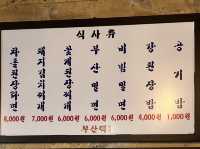 식사류
차돌된장라면
8,000원
돼지김치찌개
7,000원
꽃게된장찌개
6,000원
부산밀면
6,000원
비빔밀면
6,000원
강된장밥
4,000원
공기밥
1,000원
부산댁